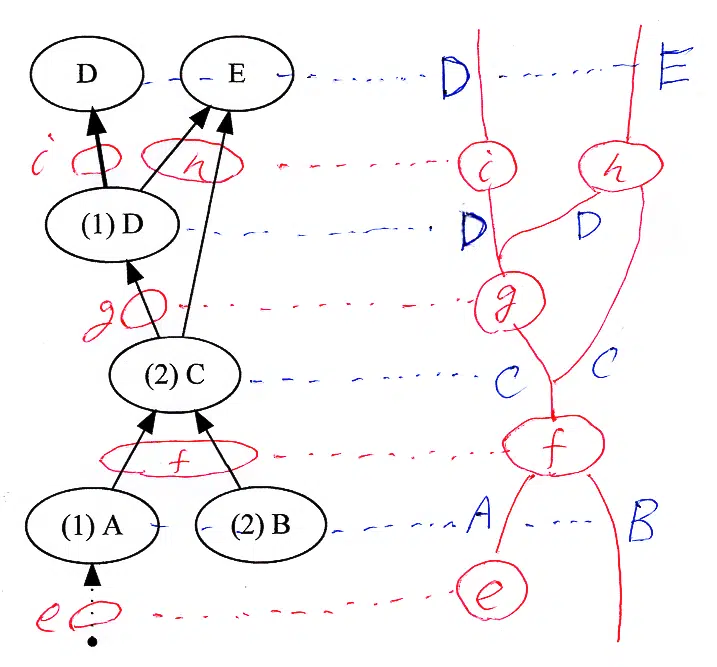 D E D E
i h i h
(1) D D D
g g
(2) C C C
f f
(1) A (2) B A B
e e